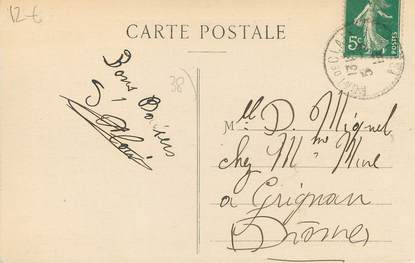 12-6
CARTE POSTALE
5c
POSTES
38
Bons Baisers
Mlle D. Mignel
chez Mme Mine
a Grignan
Drome